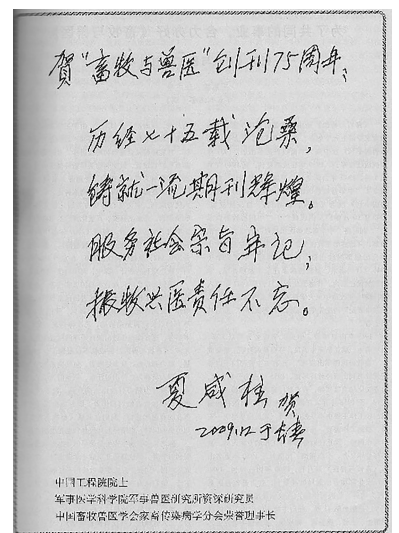 贺“畜牧与兽医”创刊75周年：
历经七十五载沧桑，
铸就一流期刊辉煌。
服务社会宗旨牢记，
振牧兴医责任不忘。
夏咸柱 贺
2009.12于长春
中国工程院院士
军事医学科学院军事兽医研究所资深研究员
中国畜牧兽医学会家畜传染病学分会荣誉理事长